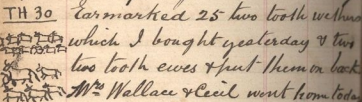 TH 30 Earmarked 25 two tooth wethers
which I bought yesterday & two
two tooth ewes & put them on back
Mrs Wallace & Cecil went home today